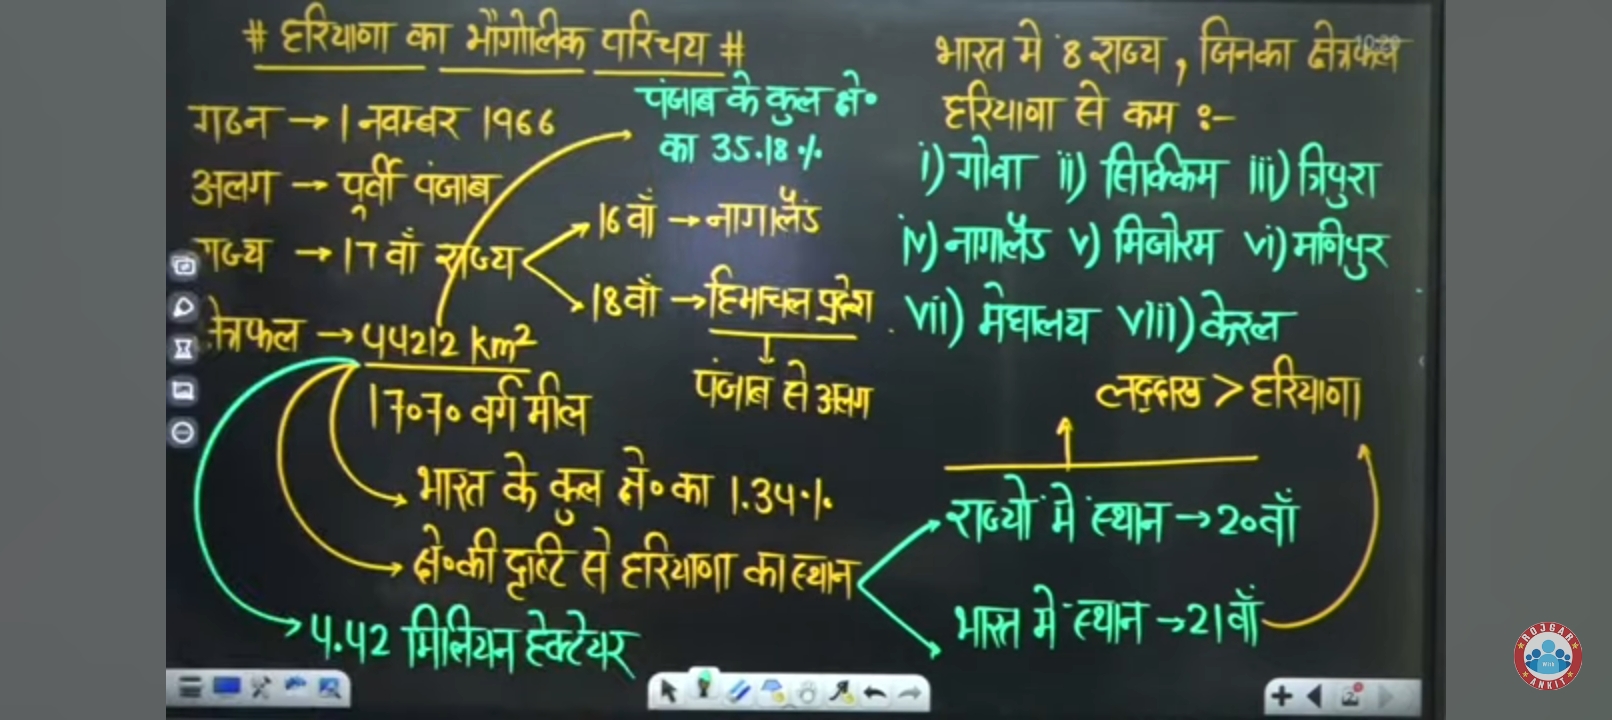 # हरियाणा का भौगोलिक परिचय #
गठन → 1 नवम्बर 1966
अलग → पूर्वी पंजाब
राज्य → 17वाँ राज्य
16वाँ → नागालैंड
18वाँ → हिमाचल प्रदेश
पंजाब से अलग
पंजाब के कुल क्षे०
का 35.18%
क्षेत्रफल → 44212 km²
17070 वर्ग मील
भारत के कुल क्षे० का 1.34%
क्षे० की दृष्टि से हरियाणा का स्थान
4.42 मिलियन हेक्टेयर
भारत में 8 राज्य, जिनका क्षेत्रफल
हरियाणा से कम :-
i) गोवा ii) सिक्किम iii) त्रिपुरा
iv) नागालैंड v) मिजोरम vi) मणिपुर
vii) मेघालय viii) केरल
लद्दाख > हरियाणा
राज्यों में स्थान → 20वाँ
भारत में स्थान → 21वाँ
ROJGAR
With
ANKIT